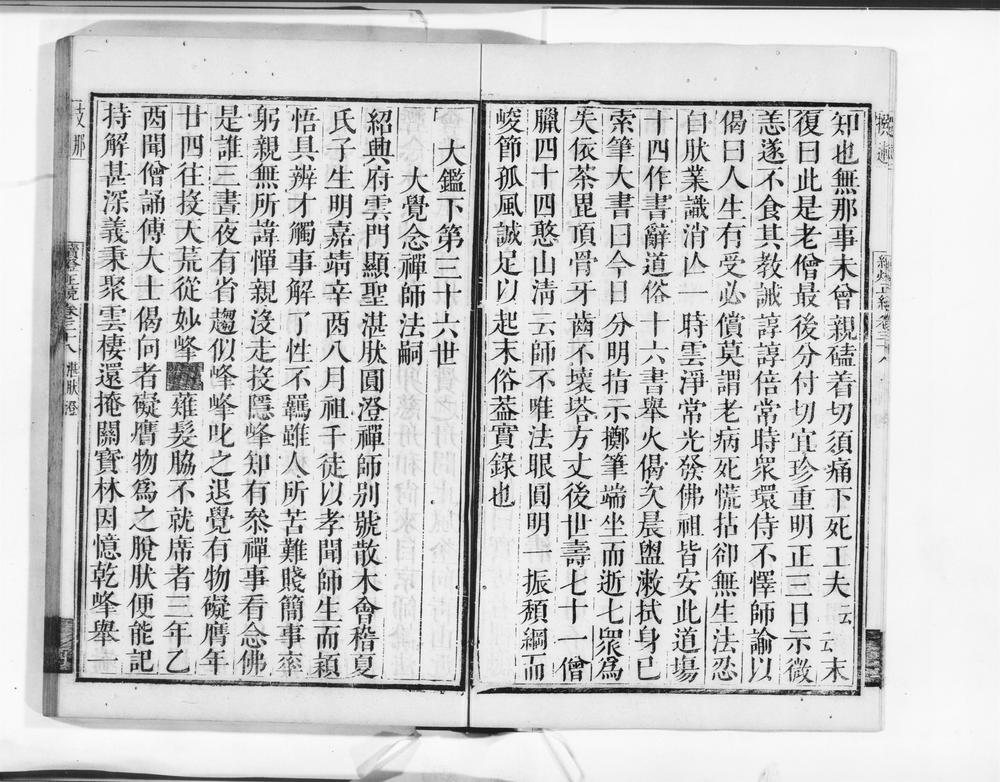 知也無那事未曾親磕着切須痛下死工夫云云末
復曰此是老僧最後分付切宜珍重明正三日示微
恙遂不食其教誡諄諄倍常時衆環侍不懌師諭以
偈曰人生有受必償莫謂老病死慌拈卻無生法忍
自肰業識消亾一時雲淨常光發佛祖皆安此道場
十四作書辭道俗十六書舉火偈次晨盥漱拭身已
索筆大書曰今日分明指示擲筆端坐而逝七衆為
失依茶毘頂骨牙齒不壞塔方丈後世壽七十一僧
臘四十四憨山淸云師不唯法眼圓明一振頹綱而
峻節孤風誠足以起末俗葢實錄也
大鑑下第三十六世
大覺念禪師法嗣
紹興府雲門顯聖湛肰圓澄禪師別號散木會稽夏
氏子生明嘉靖辛酉八月祖千徒以孝聞師生而穎
悟具辨才觸事解了性不羈雖人所苦難賤簡事率
躬親無所諱憚親沒走投隱峰知有叅禪事看念佛
是誰三晝夜有省趨似峰峰叱之退覺有物礙膺年
廿四往投天荒從妙峰薙髮脇不就席者三年乙
酉聞僧誦傅大士偈向者礙膺物為之脫肰便能記
持解甚深義秉聚雲棲還掩關寶林因憶乾峰舉一
湛肰澄